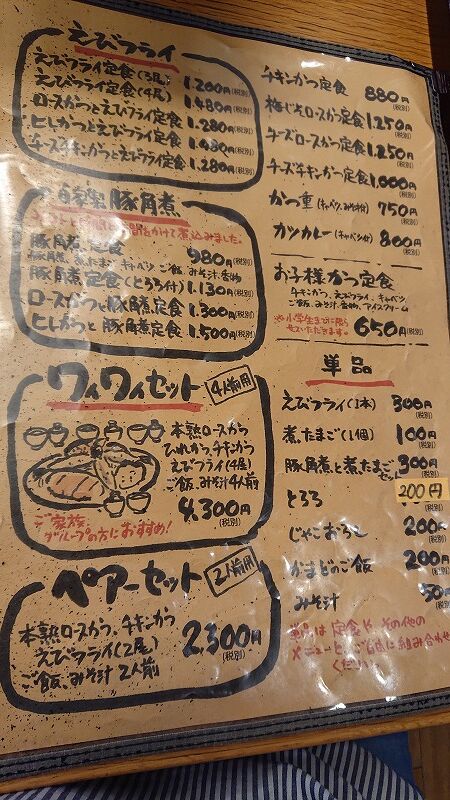 えびフライ
えびフライ定食(3尾) 1,200円(税別)
えびフライ定食(4尾) 1,480円(税別)
ロースかつとえびフライ定食 1,280円(税別)
ヒレかつとえびフライ定食 1,480円(税別)
チーズチキンかつとえびフライ定食 1,280円(税別)
自家製 豚角煮
時間をかけて煮込みました。
豚角煮 定食 980円(税別)
豚角煮、煮たまご、キャベツ、ご飯、みそ汁、香物
豚角煮 定食(とろろ付) 1,130円(税別)
ロースかつと豚角煮定食 1,300円(税別)
ヒレかつと豚角煮定食 1,500円(税別)
ワイワイセット 4人前用
本熟ロースかつ
ひれかつ、チキンかつ
えびフライ(4尾)
ご飯、みそ汁4人前
4,300円(税別)
ご家族、
グループの方におすすめ!
ペアーセット 2人前用
本熟ロースかつ、チキンかつ
えびフライ(2尾)
ご飯、みそ汁 2人前
2,300円(税別)
チキンかつ定食 880円(税別)
梅じそロースかつ定食 1,250円(税別)
チーズロースかつ定食 1,250円(税別)
チーズチキンかつ定食 1,000円(税別)
かつ重(キャベツ、みそ汁付) 750円(税別)
カツカレー(キャベツ付) 800円(税別)
お子様かつ定食
チキンかつ、えびフライ、キャベツ
ご飯、みそ汁、香物、アイスクリーム
※小学生までに限らせていただきます。 650円(税別)
単品
えびフライ(1本) 300円(税別)
煮たまご(1個) 100円(税別)
豚角煮と煮たまごセット 300円(税別)
とろろ 200円
じゃこおろし 200円(税別)
かまどのご飯 200円(税別)
みそ汁 50円(税別)
単品は 定食や その他の
メニューと、ご自由に組み合わせ
ください。